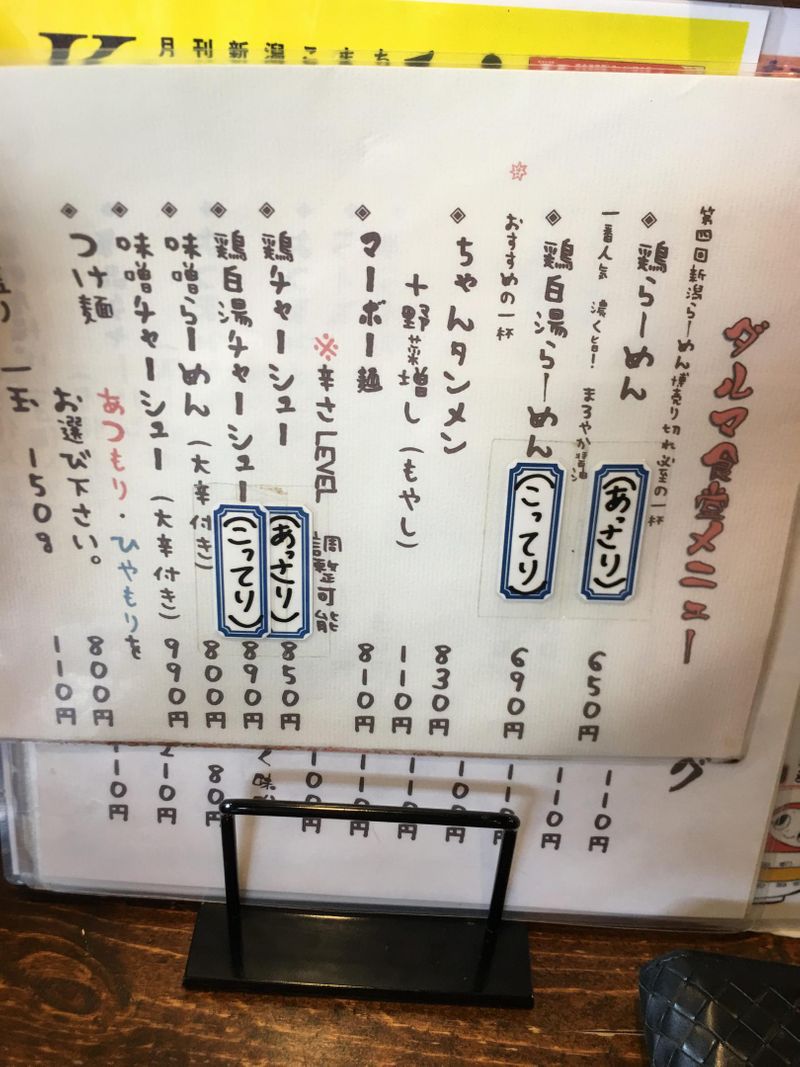 月刊新潟こまち
ダルマ食堂メニュー
第四回新潟らーめん博売り切れ必至の一杯
◈ 鶏らーめん (あっさり) 650円
一番人気 濃く旨! まろやか醤油
◈ 鶏白湯らーめん (こってり) 690円
おすすめの一杯
◈ ちゃんタンメン 830円
十野菜増し(もやし) 110円
◈ マーボー麺 810円
※辛さLEVEL 調整可能
◈ 鶏チャーシュー (あっさり) 850円
◈ 鶏白湯チャーシュー (こってり) 890円
◈ 味噌らーめん(大辛付き) 800円
◈ 味噌チャーシュー(大辛付き) 990円
◈ つけ麺 あつもり・ひやもりを 800円
お選び下さい。
一玉 150g 110円
グ
110円
110円
110円
100円
110円
110円
100円
210円
110円